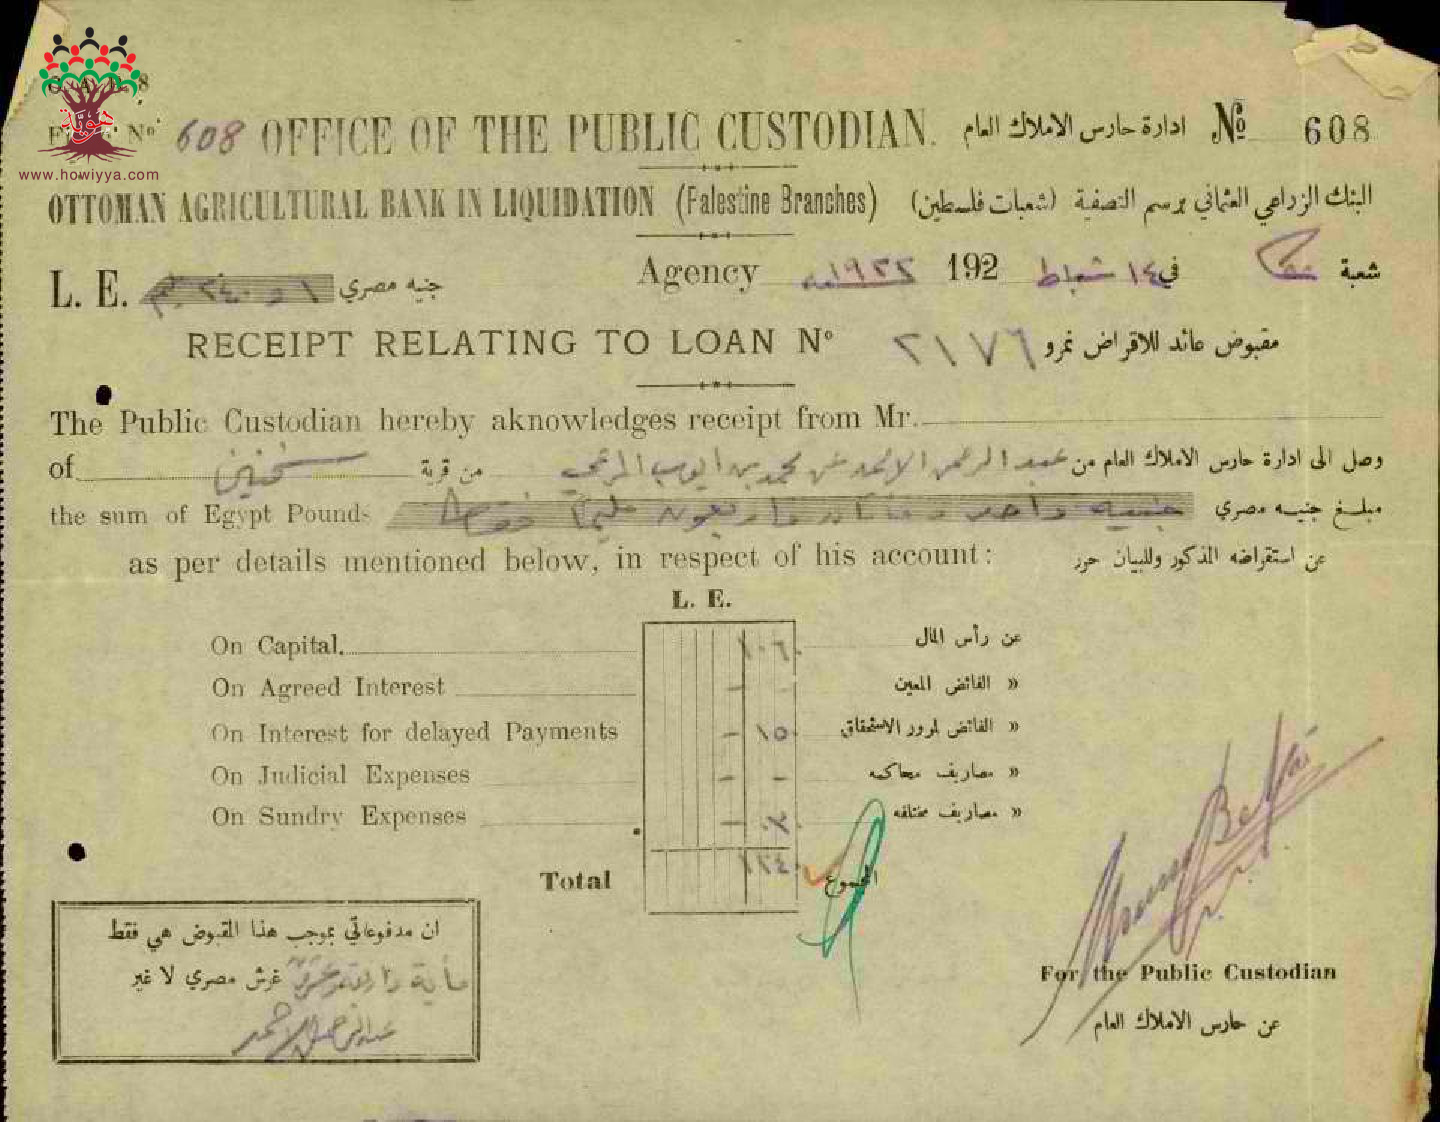 هويّة
www.howiyya.com
Nº 608
OFFICE OF THE PUBLIC CUSTODIAN. ادارة حارس الاملاك العام Nº 608
OTTOMAN AGRICULTURAL BANK IN LIQUIDATION (Falestine Branches) البنك الزراعي العثماني برسم التصفية (شعبات فلسطين)
Agency ١٩٢٢ 192 شعبة عكا في ١٤ شباط
L. E. جنيه مصري ١ و ٢٤٠
RECEIPT RELATING TO LOAN Nº مقبوض عائد للاقراض نمرو ٢١٧٦
The Public Custodian hereby aknowledges receipt from Mr.
وصل الى ادارة حارس الاملاك العام من عبد الرحمن الاحمد عن محمد بن ايوب
of من قرية سخنين
the sum of Egypt Pounds مبلغ جنيه مصري جنيه واحد ومائتان واربعون مليما فقط
as per details mentioned below, in respect of his account: عن استقراضه المذكور وللبيان حرر
L. E.
On Capital. ١٠٦٠ عن رأس المال
On Agreed Interest - - » الفائض المعين
On Interest for delayed Payments - ١٥٠ » الفائض لمرور الاستحقاق
On Judicial Expenses - - » مصاريف محاكمه
On Sundry Expenses - » مصاريف مختلفه
Total ١٢٤٠ المجموع
ان مدفوعاتي بموجب هذا المقبوض هي فقط
مأية واربعة وعشرون غرش مصري لا غير
عبد الرحمن الاحمد
For the Public Custodian
عن حارس الاملاك العام